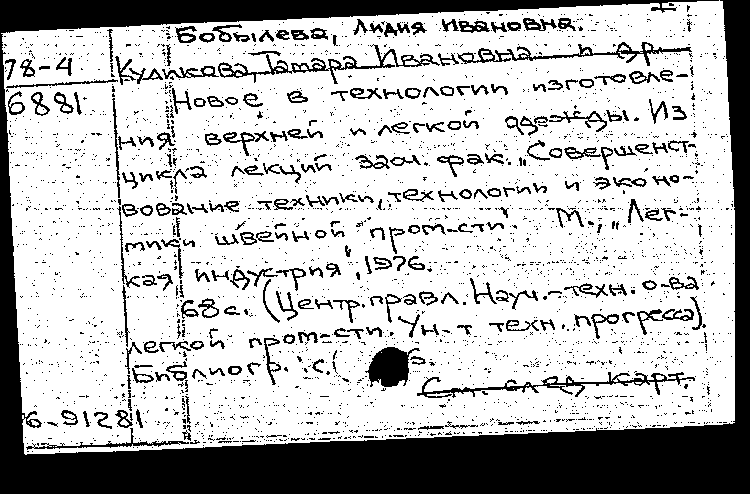 Бобылева, Лидия Ивановна.
78-4 Куликова, Тамара Ивановна и др.
6881 Новое в технологии изготовле-
ния верхней и легкой одежды. Из
цикла лекций заоч. фак. „Совершенст-
вование техники, технологии и эконо-
мики швейной пром-сти". М., „Лег-
кая индустрия", 1976.
68 с. (Центр. правл. Науч.-техн. о-ва
легкой пром-сти. Ун-т техн. прогресса).
Библиогр.: с.
См. след. карт.
6-91281